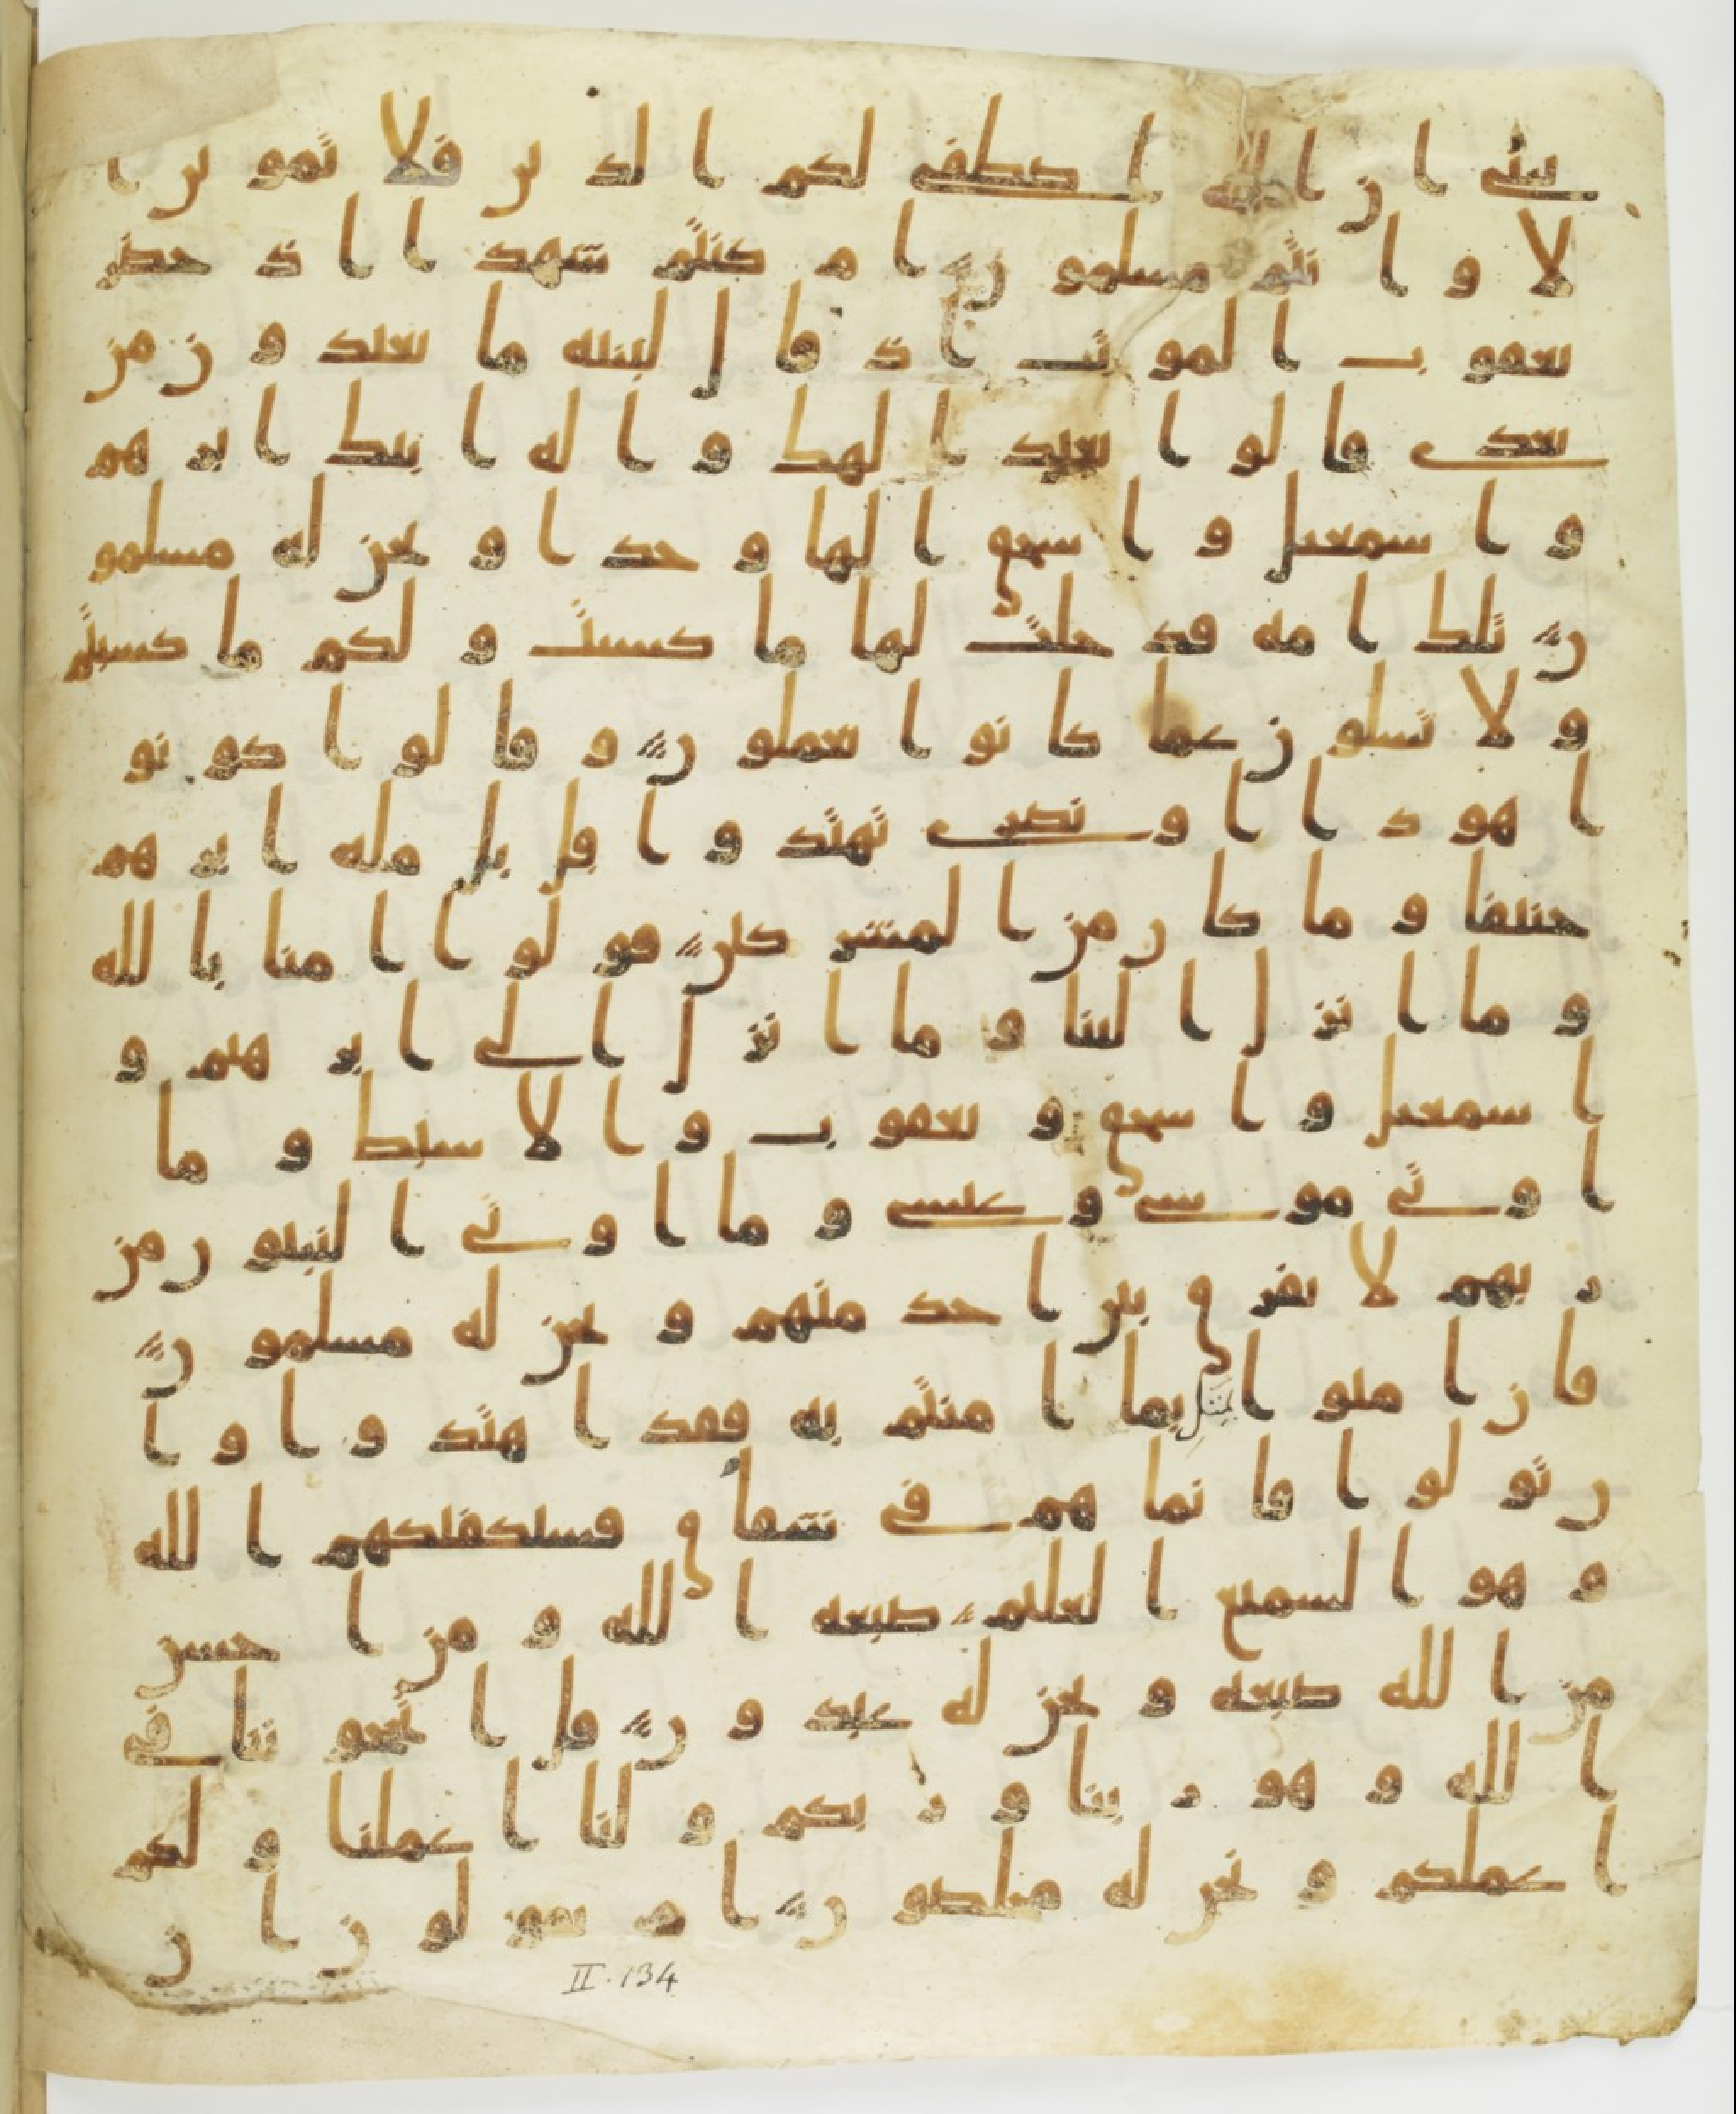 يبني ان الله اصطفى لكم الدين فلا تموتن ا
لا وانتم مسلمون ام كنتم شهدا اذ حضر
يعقوب الموت اذ قال لبنيه ما تعبدون من
بعدي قالوا نعبد الهك واله ابيك ابرهم
واسمعيل واسحق الها وحدا ونحن له مسلمو
ن تلك امه قد خلت لها ما كسبت ولكم ما كسبتم
ولا تسلون عما كانوا يعملون وقالوا كونو
ا هودا او نصرى تهتدوا قل بل مله ابرهم
حنيفا وما كان من المشركين قولوا امنا بالله
وما انزل الينا وما انزل الى ابرهيم و
اسمعيل واسحق ويعقوب والاسبط وما
اوتي موسى وعيسى وما اوتي النبيون من
ربهم لا نفرق بين احد منهم ونحن له مسلمون
فان امنوا بمثل بما امنتم به فقد اهتدوا وا
ن تولوا فانما هم في شقاق فسيكفيكهم الله
وهو السميع العليم صبغه الله ومن احسن
من الله صبغه ونحن له عبدون قل اتحجوننا في
الله وهو ربنا وربكم ولنا اعملنا ولكم
اعملكم ونحن له مخلصون ام يقولون ان
II.134